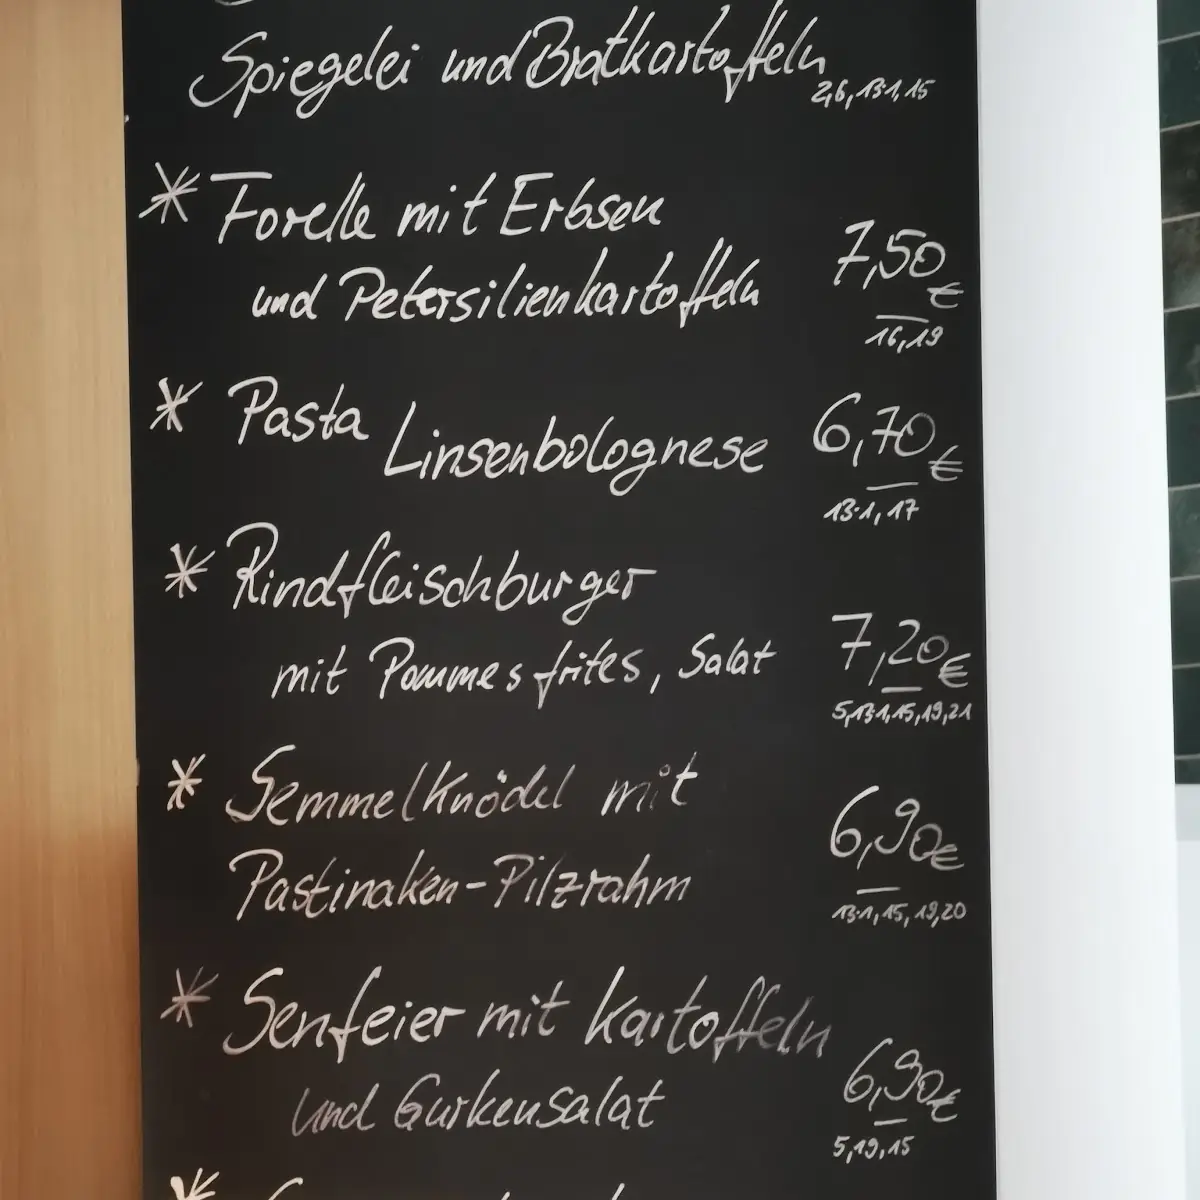 Spiegelei und Bratkartoffeln
2,6,13.1,15
* Forelle mit Erbsen
und Petersilienkartoffeln
7,50 €
16,19
* Pasta Linsenbolognese 6,70 €
13.1, 17
* Rindfleischburger
mit Pommes frites, Salat 7,20 €
5,13.1,15,19,21
* Semmelknödel mit
6,90 €
Pastinaken-Pilzrahm
13.1, 15, 19, 20
* Senfeier mit Kartoffeln
und Gurkensalat 6,90 €
5,19,15
*